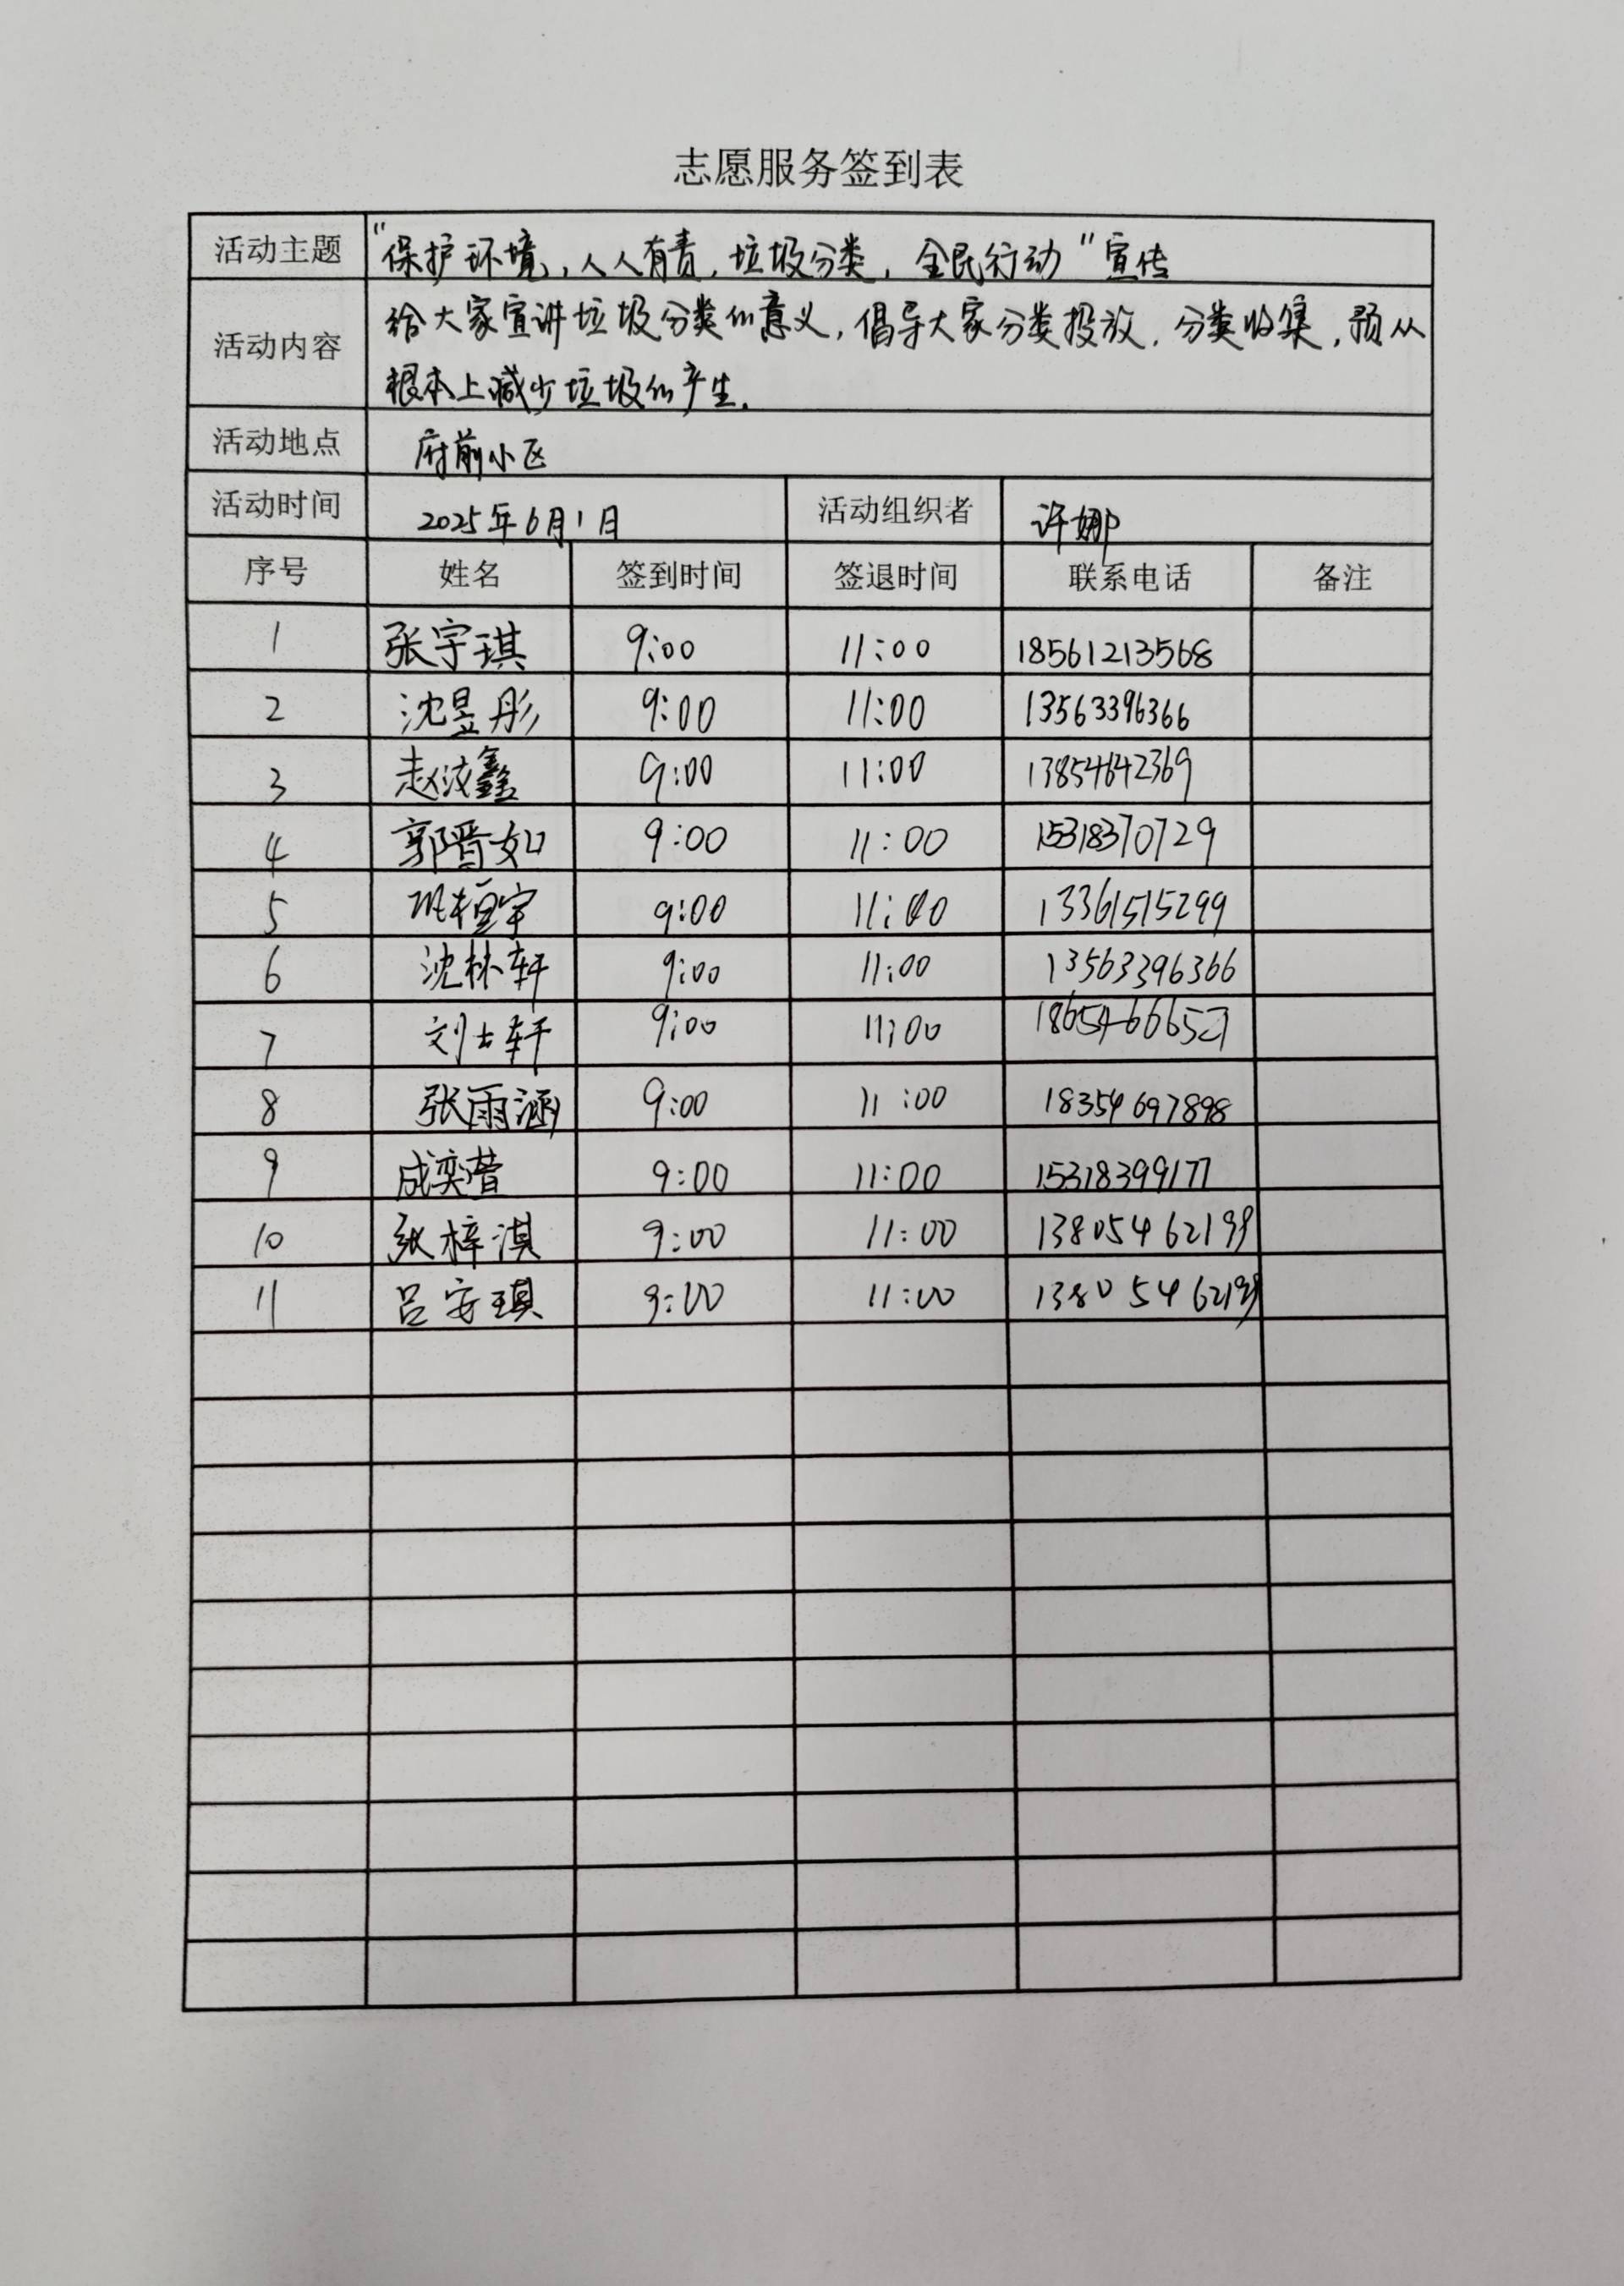 志愿服务签到表
活动主题 “保护环境，人人有责，垃圾分类，全民行动”宣传
活动内容 给大家宣讲垃圾分类的意义，倡导大家分类投放，分类收集，须从
根本上减少垃圾的产生.
活动地点 府前小区
活动时间 2025年6月1日 活动组织者 许娜
序号 姓名 签到时间 签退时间 联系电话 备注
1 张宇琪 9:00 11:00 18561213568
2 沈昱彤 9:00 11:00 13563396366
3 赵浚鑫 9:00 11:00 13854642369
4 郭晋如 9:00 11:00 15318370729
5 桓宇 9:00 11:00 13361515299
6 沈林轩 9:00 11:00 13563396366
7 刘士轩 9:00 11:00 18654666527
8 张雨涵 9:00 11:00 18354697898
9 成奕萱 9:00 11:00 15318399177
10 张梓淇 9:00 11:00 13805462199
11 吕安琪 9:00 11:00